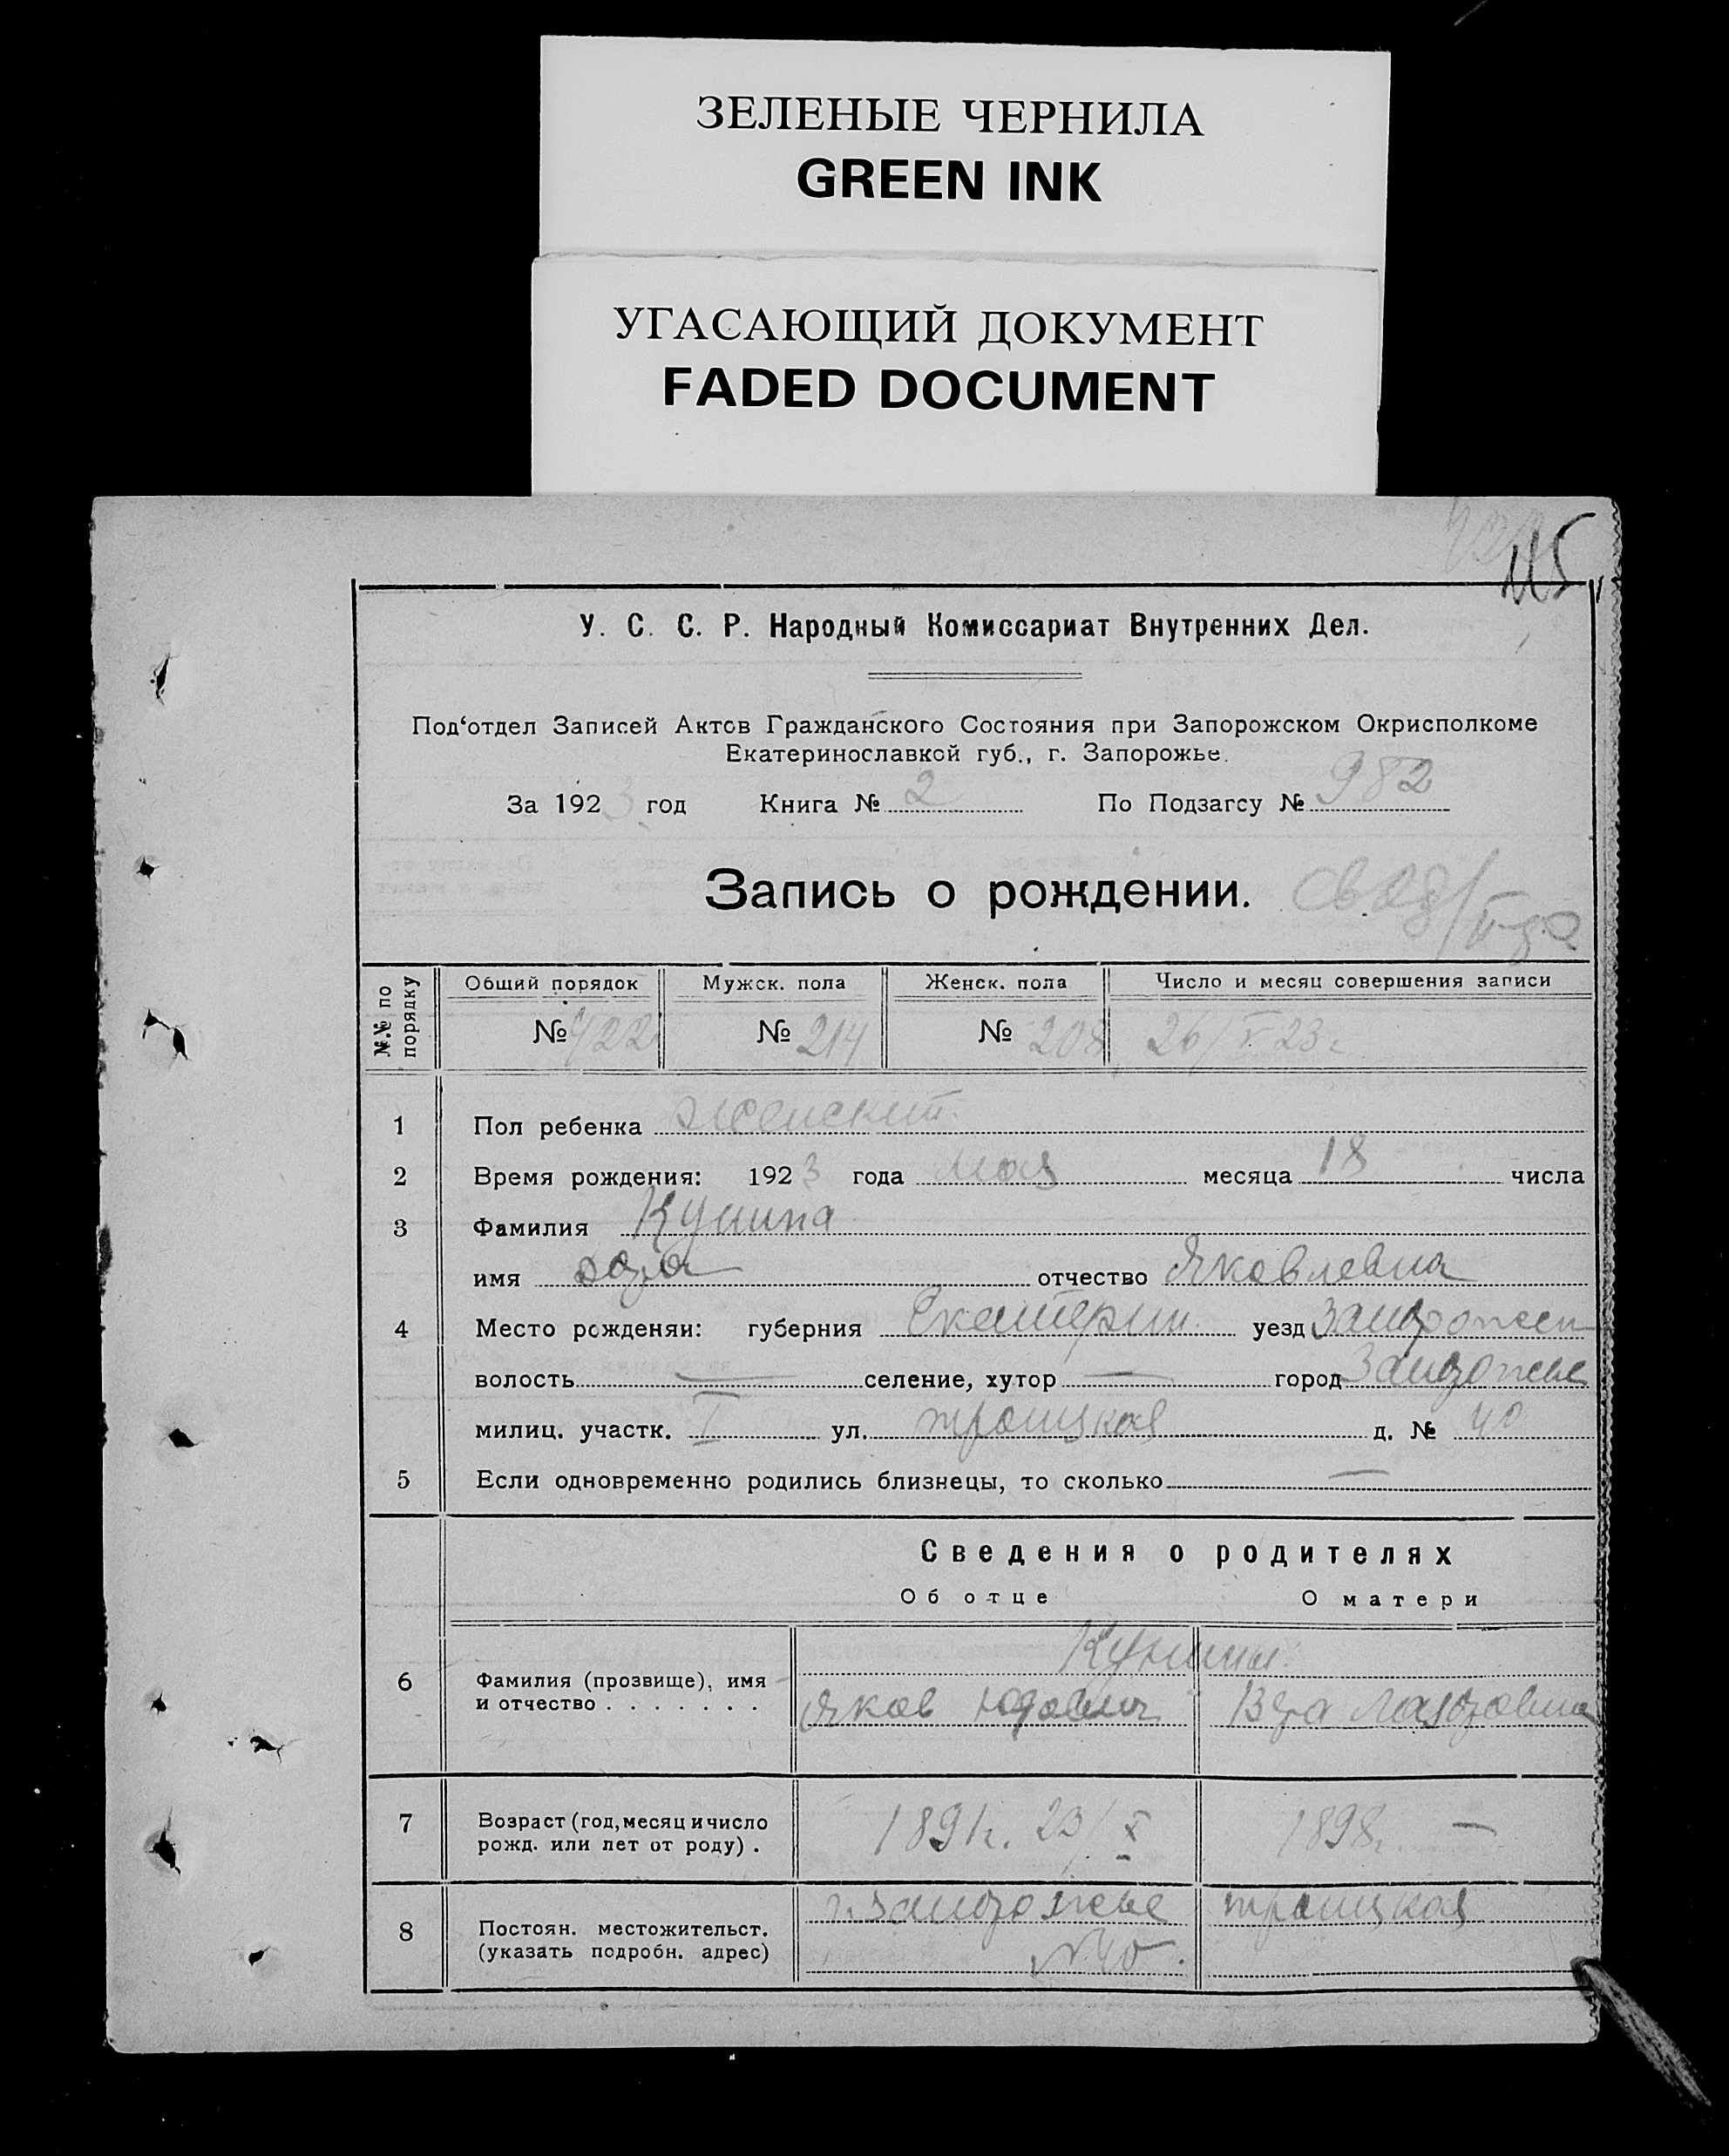 ЗЕЛЕНЫЕ ЧЕРНИЛА
GREEN INK
УГАСАЮЩИЙ ДОКУМЕНТ
FADED DOCUMENT
115
У. С. С. Р. Народный Комиссариат Внутренних Дел.
Под‘отдел Записей Актов Гражданского Состояния при Запорожском Окрисполкоме
Екатеринославкой губ., г. Запорожье.
За 1923 год Книга № 2 По Подзагсу № 982
Запись о рождении.
№№ по порядку
Общий порядок Мужск. пола Женск. пола Число и месяц совершения записи
№ 422 № 214 № 208 26/V 23г
1 Пол ребенка женский.
2 Время рождения: 1923 года мая месяца 18 числа
3 Фамилия Кунина
имя отчество Яковлевна
4 Место рожденяи: губерния Екатерин. уезд Запорожск
волость — селение, хутор — город Запорожье
милиц. участк. I ул. Троицкая д. № 40
5 Если одновременно родились близнецы, то сколько —
Сведения о родителях
Об отце О матери
Кунины
6 Фамилия (прозвище), имя
и отчество . . . . . . . Яков Юдович Вера Лазаровна
7 Возраст (год, месяц и число
рожд. или лет от роду) . 1891г. 23/X 1898г. —
г. Запорожье Троицкая
8 Постоян. местожительст.
(указать подробн. адрес) № 40.